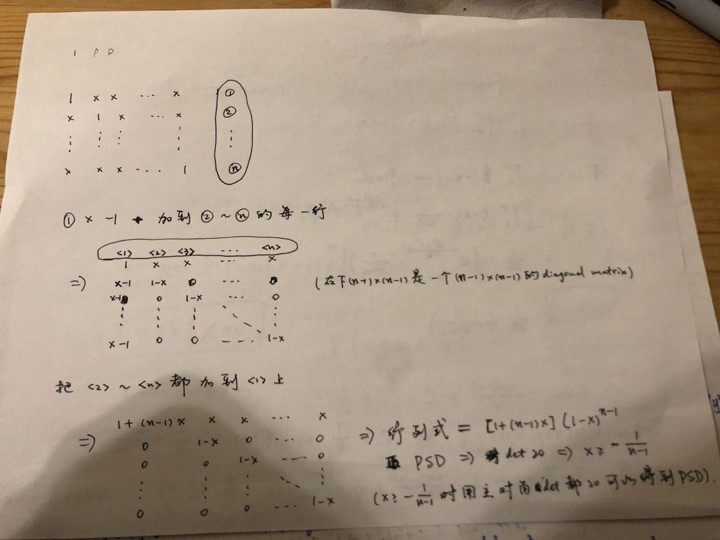 1 P D
1 x x ... x ①
x 1 x ... x ②
⋮ ⋮ ⋮ ⋮ ⋮
x x x ... 1 ⓝ
① x -1 加到 ② ~ ⓝ 的每一行
<1> <2> <3> ... <n>
1 x x ... x
=> x-1 1-x 0 ... 0 (右下(n-1)x(n-1)是一个(n-1)x(n-1)的diagonal matrix)
x-1 0 1-x ... 0
⋮ ⋮ ⋮
x-1 0 0 ... 1-x
把 <2> ~ <n> 都加到 <1> 上
1+(n-1)x x x ... x
=> 0 1-x 0 ... 0
0 0 1-x ... 0
⋮ ⋮ ⋮ ⋮
0 0 0 ... 1-x
=> 行列式 = [1+(n-1)x] (1-x)^{n-1}
PSD => det ≥0 => x ≥ -1/(n-1)
(x ≥ -1/(n-1) 时用主对角det都≥0可以得到PSD).